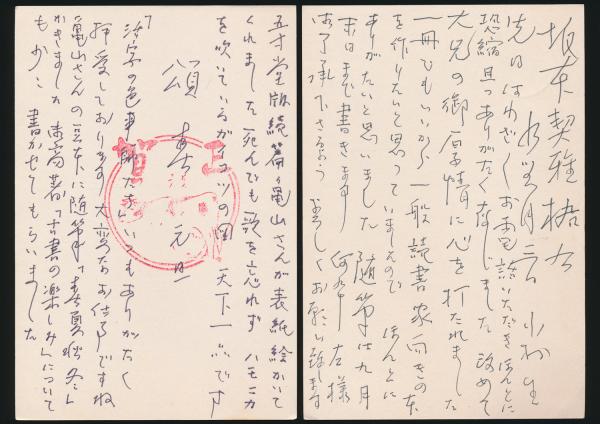 坂本契雅格右
小村生
先日はわざわざお電話いただきほんとに
恐縮且つありがたく存じました 改めて
大兄の御厚情に心を打たれました
一冊でもいいから一般読書家向きの本
を作りたいと思っていましたので ほんとに
ありがたいと思いました 随筆は九月
末日まで書きます 何卒左様
御了承下さるよう よろしくお願い致します
五才堂版続篇に亀山さんが表紙絵かいて
くれました 死んでも歌を忘れず ハモニカ
を吹いているガイコツの図 天下一品です
頌春
元旦
賀正
「漢字の色事師たち」いつもありがたく
拝受しております 大変なお仕事ですね
亀山さんの豆本に随筆「春夏秋冬」
かきました 貴高著「古書の楽しみ」について
も少々 書かせてもらいました